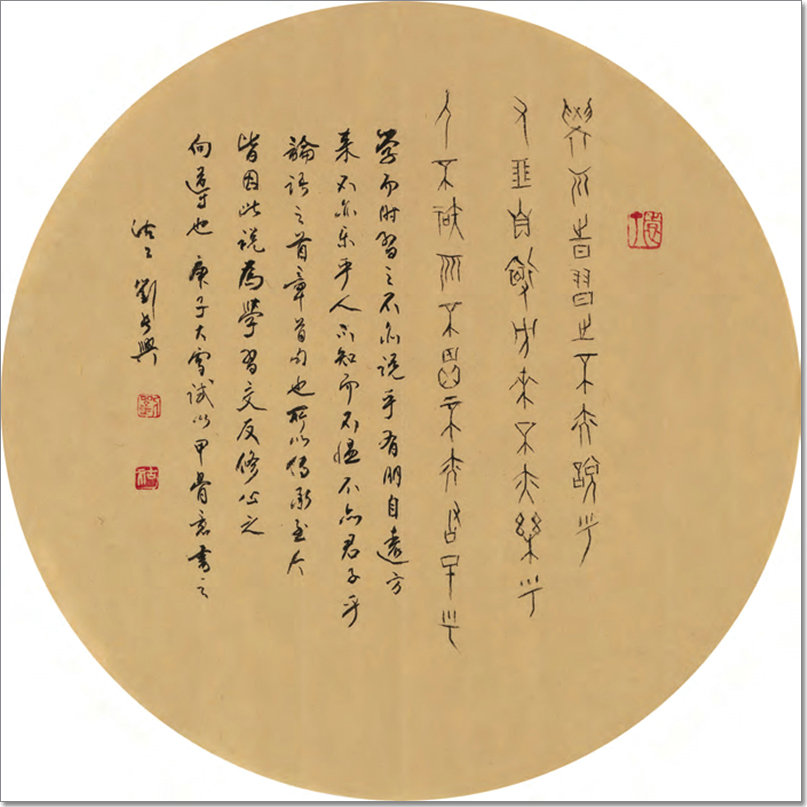 學而時習之不亦說乎
有朋自遠方來不亦樂乎
人不知而不慍不亦君子乎
学而时習之不亦说乎有朋自遠方
来不亦乐乎人不知而不愠不亦君子乎
論语之首章首句也所以傳承至今
皆因此说為學習交友修心之
向導也 庚子大雪试以甲骨意書之
劉興